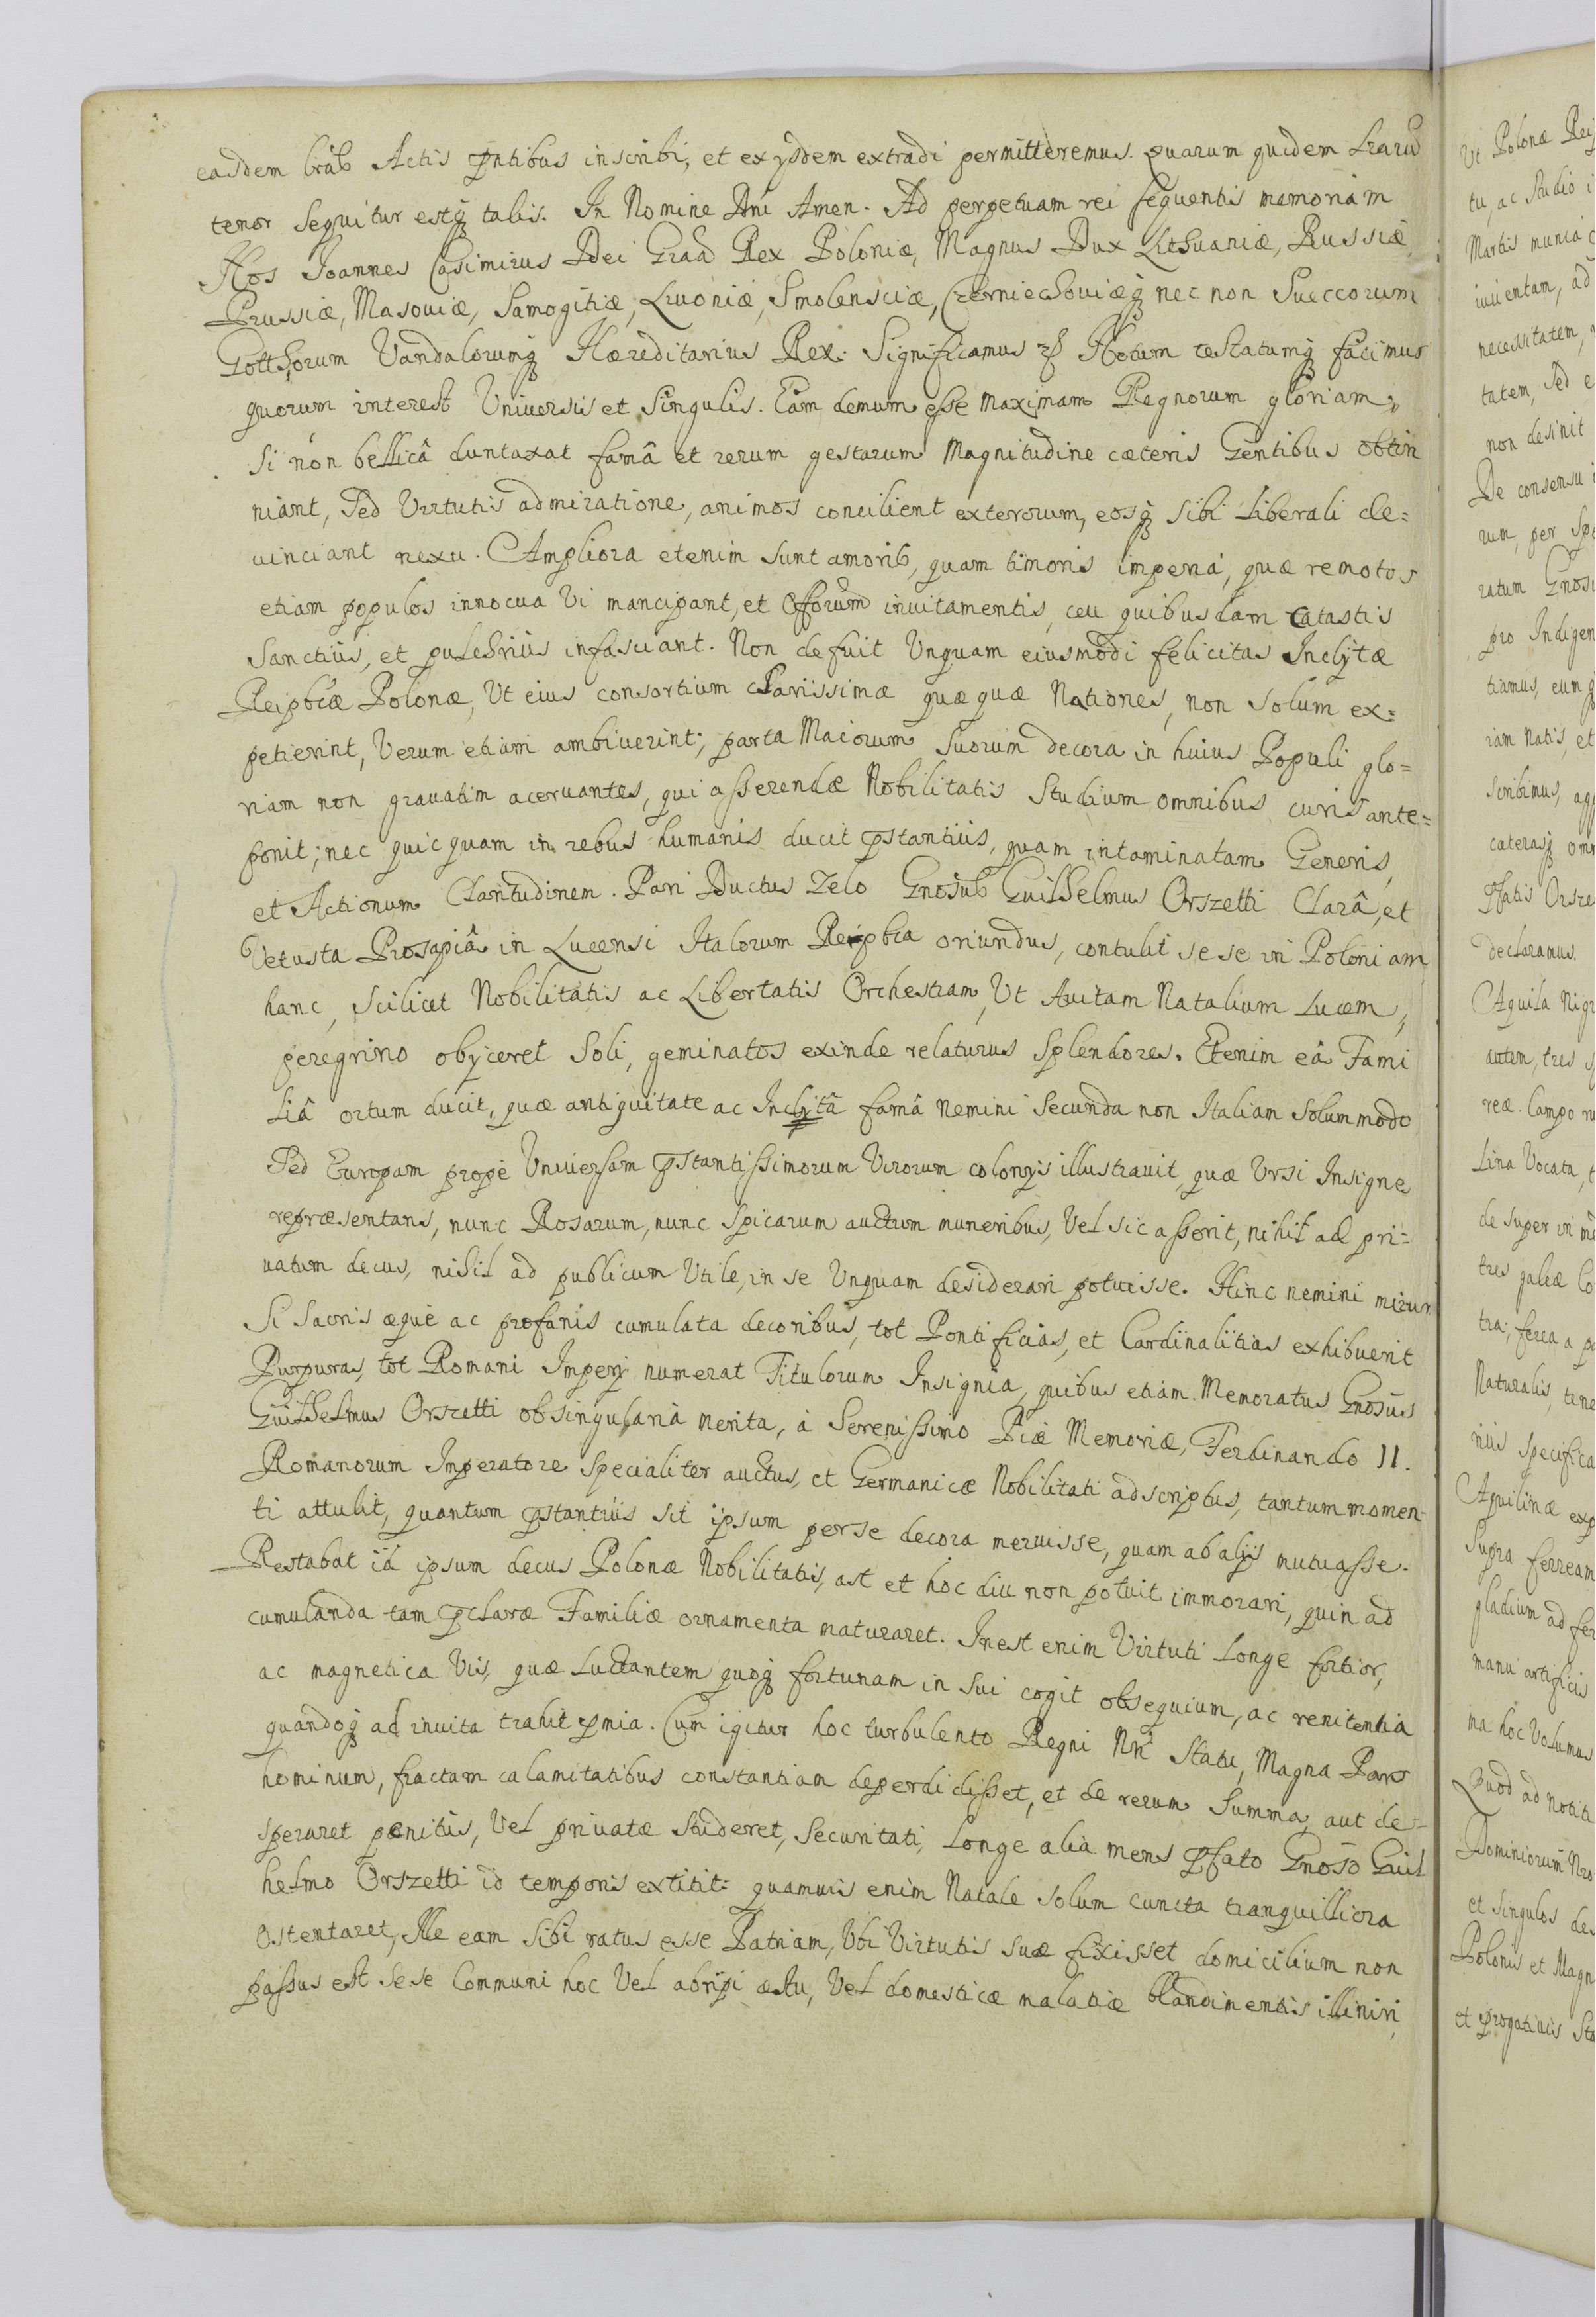 easdem lrās Actis pñtibus inscribi, et ex ÿsdem extradi permitteremus. Quarum quidem Lrarū
tenor sequitur estq́ talis. In Nomine Dñi Amen. Ad perpetuam rei sequentis memoriam
Nos Joannes Casimirus Dei Graā Rex Poloniæ, Magnus Dux Lithuaniæ, Russiæ
Prussiæ, Masouiæ, Samogitiæ, Liuoniæ, Smolensciæ, Czerniechouiæq́ nec non Sueccorum
Gotthorum Vandalorumq́ Hæreditarius Rex. Significamus Notum testatumq́ facimus
quorum interest Vniuersis et Singulis. Eam demum esse maximam Regnorum gloriam,
Si non bellicâ duntaxat famâ et rerum gestarum Magnitudine cæteris Gentibus obtin
niant, Sed Virtutis admiratione, animos concilient exterorum, eosq́ sibi Liberali de=
uinciant nexu. Ampliora etenim sunt amoris, quam timoris imperia, quæ remotos
etiam populos innocua Vi mancipant, et Offorum inuitamentis, ceu quibusdam catastis
Sanctius, et pulchrius infasciant. Non defuit Vnquam eiusmodi felicitas Inclÿtæ
Reipbcæ Polonæ, Vt eius consortium clarissimæ quæquæ Nationes, non solum ex=
petierint, Verum etiam ambiuerint; parta Maiorum Suorum decora in huius Populi glo=
riam non grauatim aceruantes, qui asserendæ Nobilitatis Studium omnibus curis ante=
ponit; nec quicquam in rebus humanis ducit pstantius, quam intaminatam Generis,
et Actionum Claritudinem. Pari Ductus Zelo Gnosus Guilhelmus Orszetti Clarâ, et
Vetusta Prosapiâ in Lucensi Italorum Reipbca oriundus, contulit se se in Poloniam
hanc, scilicet Nobilitatis ac Libertatis Orchestram, Vt Auitam Natalium Lucem,
peregrino obÿceret Soli, geminatos exinde relaturus Splendores. Etenim eâ Fami
Liâ ortum ducit, quæ antiquitate ac Inclÿtâ famâ nemini Secunda non Italiam Solummodo
Sed Europam propè Vniuersam pstantissimorum Virorum colonÿs illustrauit, quæ Vrsi Insigne
repræsentans, nunc Rosarum, nunc Spicarum auctum muneribus, Vel sic asserit, nihil ad pri=
uatum decus, nihil ad publicum Vtile, in se Vnquam desiderari potuisse. Hinc nemini mirum
Si Sacris æquè ac profanis cumulata decoribus, tot Pontificias, et Cardinalitias exhibuerit
Purpuras, tot Romani Imperÿ numerat Titulorum Insignia, quibus etiam Memoratus Gnosus
Guilhelmus Orszetti ob singularia merita, à Serenissimo Piæ Memoriæ, Ferdinando II.
Romanorum Imperatore specialiter auctus, et Germanicæ Nobilitati adscriptus, tantum momen
ti attulit, quantum pstantius sit ipsum per se decora meruisse, quam ab alÿs mutuasse.
Restabat id ipsum decus Polonæ Nobilitatis, ast et hoc diu non potuit immorari, quin ad
cumulanda tam pclaræ Familiæ ornamenta maturaret. Inest enim Virtuti Longe fortior,
ac magnetica Vis, quæ Luctantem quoq́ fortunam in Sui cogit obsequium, ac renitentia
quandoq́ ad inuita trahit pmia. Cum igitur hoc turbulento Regni Nri Statu, Magna Pars
hominum, fractam calamitatibus constantiam deperdidisset, et de rerum Summa, aut de=
speraret penitùs, Vel priuatæ Studeret, Securitati, Longe alia mens pfato Gnoso Guil
helmo Orszetti id temporis extitit: quamuis enim Natale solum cuncta tranquilliora
Ostentaret, Ille eam sibi ratus esse Patriam, Vbi Virtutis Suæ fixisset domicilium non
passus est Se se Communi hoc Vel abripi æstu, Vel domesticæ malatiæ blandimentis illiniri,
Vt Polonæ Rei
tu, ac Studio
Martis munia
iuuentam, ad
necessitatem,
tatem, Sed
non desinit
De consensu
rum, per Spe
ratum Gnosu
pro Indigen
tiamus, eum
riam Natis, et
Scribimus,
cæterasq́ om
pfatis Orsze
declaramus.
Aquila Nigr
autem, tres
reæ. Campo
Lina Vocata,
de super in
tres galeæ
tra, ferea a
Naturalis, tene
rius specifica
Aquilinæ exp
Supra ferream
gladium ad fer
manu artificis
ma hoc Volumus
Quod ad notiti
Dominiorum Nro
et Singulos des
Polonis et Magn
et progatiuis Sta